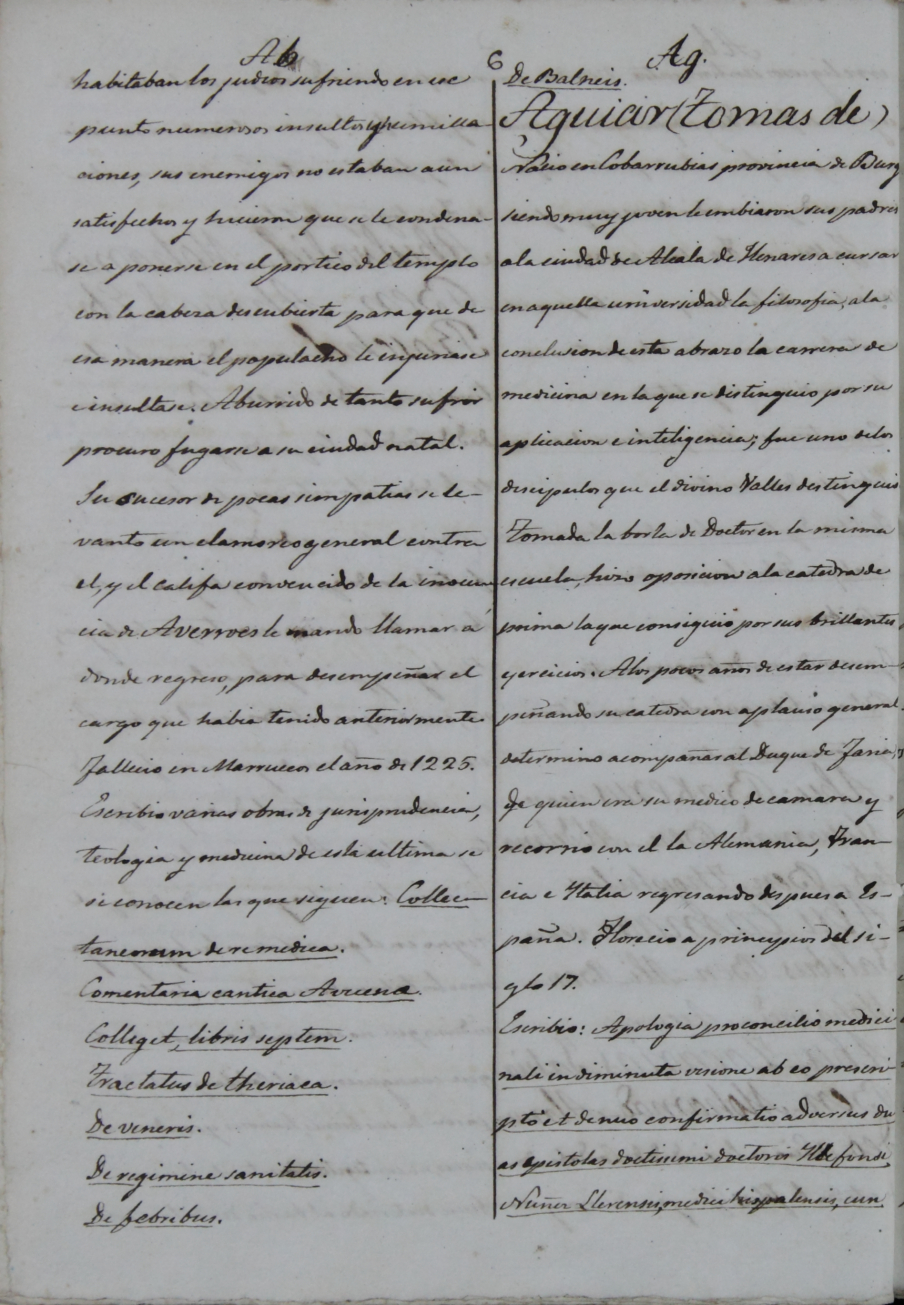 Ab
habitaban los judios sufriendo en ese
punto numerosos insultos y humilla-
ciones, sus enemigos no estaban aun
satisfechos y hicieron que se le condena-
se a ponerse en el portico del templo
con la cabeza descubierta para que de
esa manera el populacho le injuriase
e insultase. Aburrido de tanto sufrir
procuro fugarse a su ciudad natal.
Su sucesor de pocas simpatias se le-
vanto un clamoreo general contra
el, y el califa convencido de la inocen
cia de Averroes le mando llamar á
donde regreso, para desempeñar el
cargo que habia tenido anteriormente
Fallecio en Marruecos el año de 1225.
Escribio varias obras de jurisprudencia,
teologia y medicina de esta ultima se
se conocen las que siguen: Collec-
taneorum de re medica.
Comentaria cantica Avicenæ.
Colliget, libris septem.
Tractatus de theriaca.
De veneris.
De regimine sanitatis.
De febribus.
6
Ag.
De Balneis.
Aguiar (Tomas de)
Nacio en Cobarrubias provincia de Burg
siendo muy joven le embiaron sus padres
a la ciudad de Alcala de Henares a cursar
en aquella universidad la filosofia, a la
conclusion de esta abrazo la carrera de
medicina en la que se distinguio por su
aplicacion e inteligencia; fue uno de los
discipulos que el divino Valles distinguio
Tomada la borla de Doctor en la misma
escuela, hizo oposicion a la catedra de
prima la que consiguio por sus brillantes
ejercicios. A los pocos años de estar desem-
peñando su catedra con aplauso general
determino acompañar al Duque de Faria,
de quien era su medico de camara y
recorrio con el la Alemania, Fran-
cia e Italia regresando despues a Es-
paña. Florecio a principios del si-
glo 17.
Escribio: Apologia pro concilio medici
nali in diminuta visione ab eo prescri-
pto et denuo confirmatio adversus du
as epistolas doctissimi doctoris Ildefonsi
Nuñez Llerensis, medici hispalensis, cum